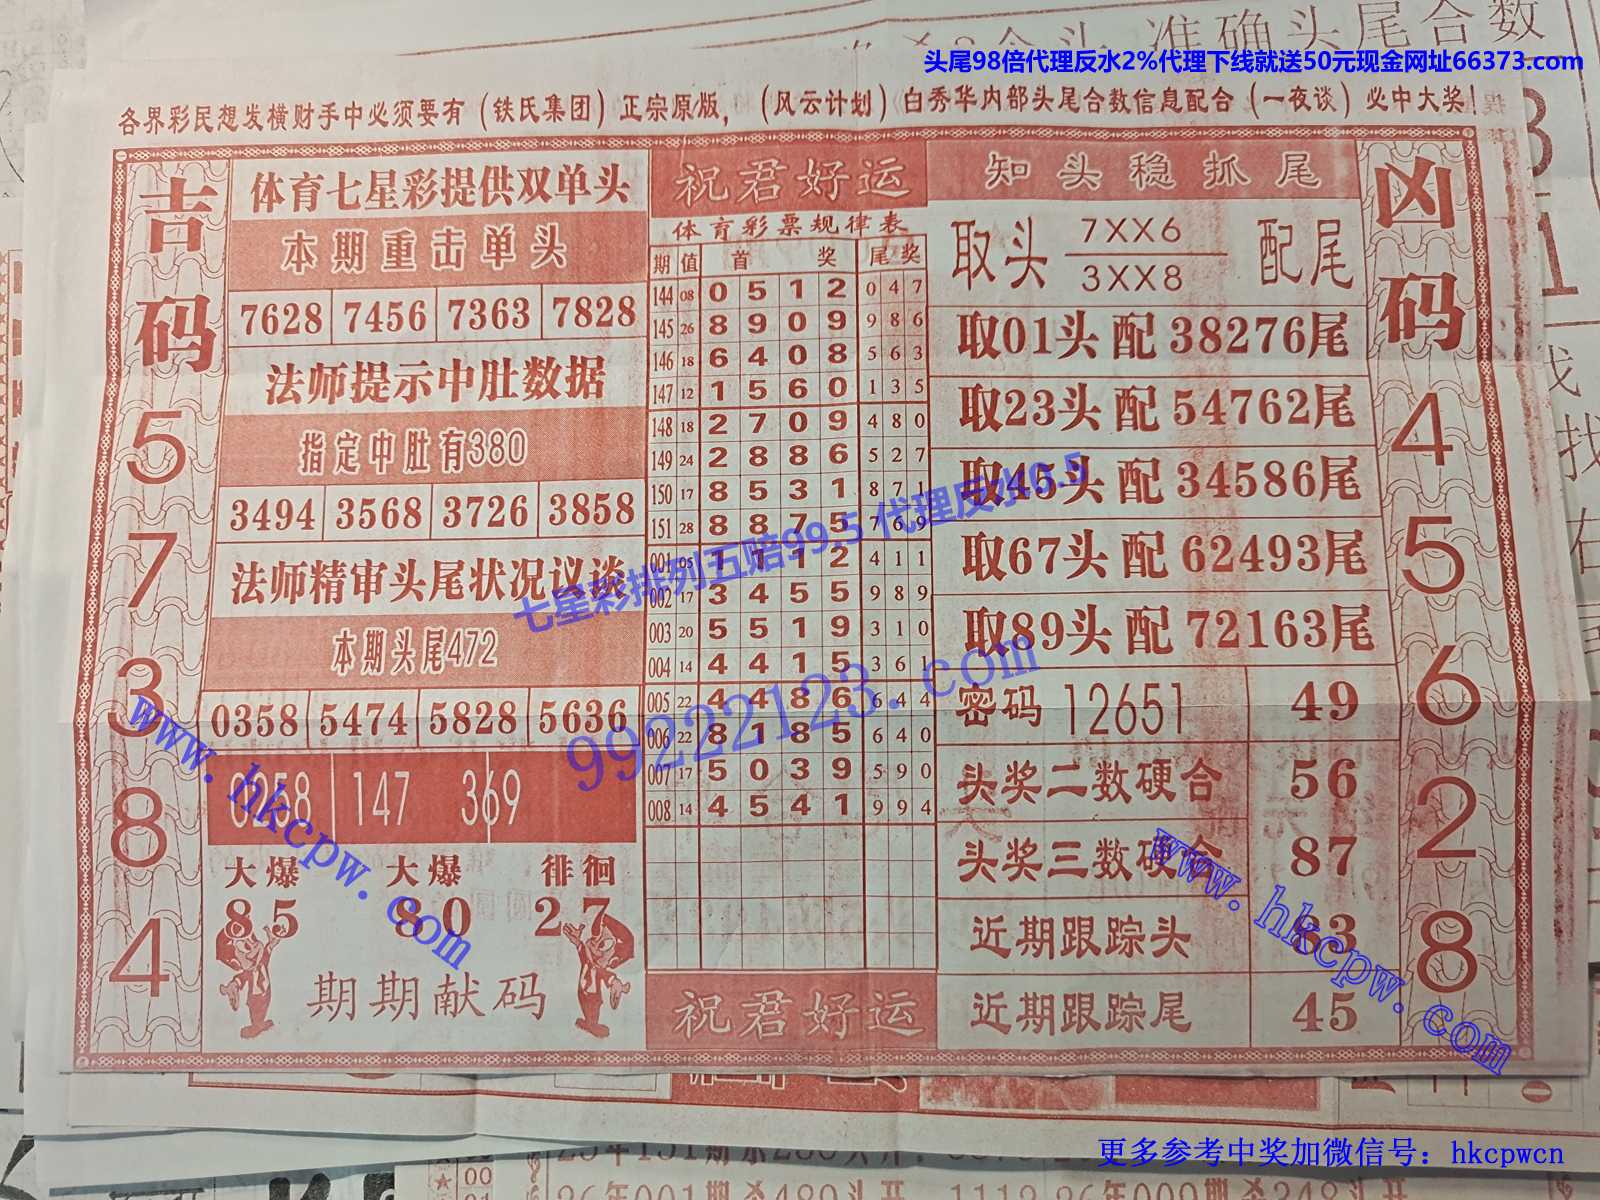 头尾98倍代理反水2%代理下线就送50元现金网址66373.com
准确头尾合数
各界彩民想发横财手中必须要有(铁氏集团)正宗原版,(风云计划)白秀华内部头尾合数信息配合(一夜谈)必中大奖!
吉码
5
7
3
8
4
体育七星彩提供双单头
本期重击单头
7628 7456 7363 7828
法师提示中肚数据
指定中肚有380
3494 3568 3726 3858
法师精审头尾状况议谈
本期头尾472
0358 5474 5828 5636
0258 147 369
大爆 大爆 徘徊
85 80 27
期期献码
祝君好运
体育彩票规律表
期 值 首 奖 尾奖
144 08 0 5 1 2 0 4 7
145 26 8 9 0 9 9 8 6
146 18 6 4 0 8 5 6 3
147 12 1 5 6 0 1 3 5
148 18 2 7 0 9 4 8 0
149 24 2 8 8 6 5 2 7
150 17 8 5 3 1 8 7 1
151 28 8 8 7 5 7 6 9
001 05 1 1 1 2 4 1 1
002 17 3 4 5 5 9 8 9
003 20 5 5 1 9 3 1 0
004 14 4 4 1 5 3 6 1
005 22 4 4 8 6 6 4 4
006 22 8 1 8 5 6 4 0
007 17 5 0 3 9 5 9 0
008 14 4 5 4 1 9 9 4
祝君好运
知头稳抓尾
取头 7XX6 配尾
3XX8
取01头 配 38276尾
取23头 配 54762尾
取45头 配 34586尾
取67头 配 62493尾
取89头 配 72163尾
密码 12651 49
头奖二数硬合 56
头奖三数硬合 87
近期跟踪头 63
近期跟踪尾 45
凶码
4
5
6
2
8
七星彩排列五赔99.5 代理反水0.5
99222123.com
www.hkcpw.com
www.hkcpw.com
更多参考中奖加微信号：hkcpwcn